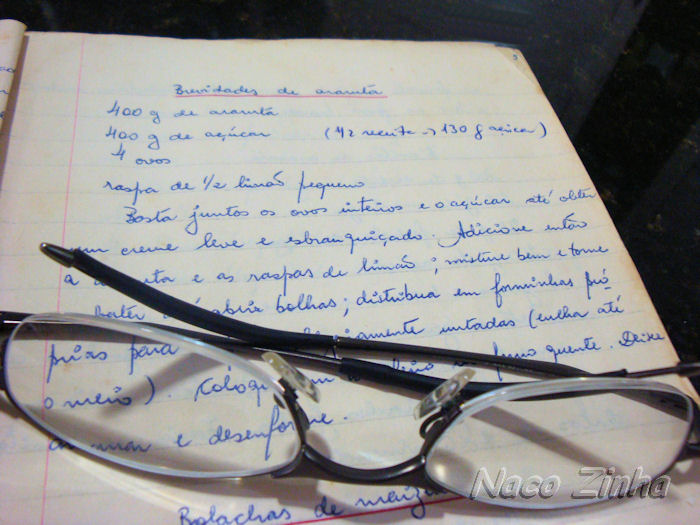 Brevidades de araruta
400 g de araruta
400 g de açúcar (1/2 receita → 130 g açúcar)
4 ovos
raspa de 1/2 limão pequeno
Basta juntos os ovos inteiros e o açúcar até obter
um creme leve e esbranquiçado. Adicione então
a e as raspas de limão; misture bem e torne
bater abrir bolhas; distribua em forminhas pró-
prias para untadas (encha até
o meio). forno quente. Deixe
e desenforme.
Bolachas de
Naco Zinha